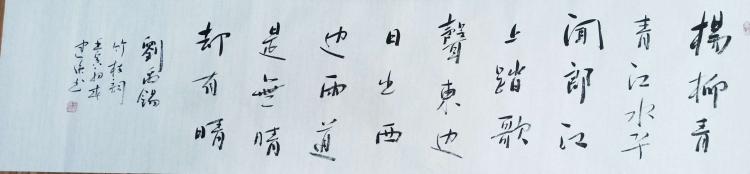 楊柳青
青江水平
聞郎江
上踏歌
聲東边
日出西
边雨道
是無晴
却有晴
劉禹錫
竹枝詞
壬寅初春
书